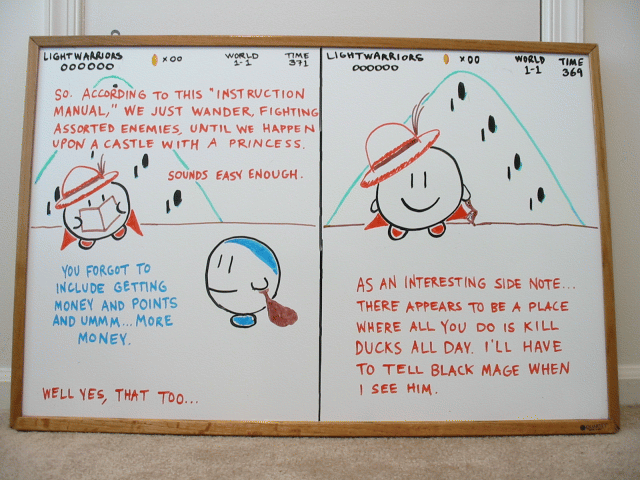 LIGHTWARRIORS
000000
×00
WORLD
1-1
TIME
371
SO. ACCORDING TO THIS "INSTRUCTION
MANUAL," WE JUST WANDER, FIGHTING
ASSORTED ENEMIES, UNTIL WE HAPPEN
UPON A CASTLE WITH A PRINCESS.
SOUNDS EASY ENOUGH.
YOU FORGOT TO
INCLUDE GETTING
MONEY AND POINTS
AND UMMM... MORE
MONEY.
WELL YES, THAT TOO...
LIGHTWARRIORS
000000
×00
WORLD
1-1
TIME
369
AS AN INTERESTING SIDE NOTE...
THERE APPEARS TO BE A PLACE
WHERE ALL YOU DO IS KILL
DUCKS ALL DAY. I'LL HAVE
TO TELL BLACK MAGE WHEN
I SEE HIM.